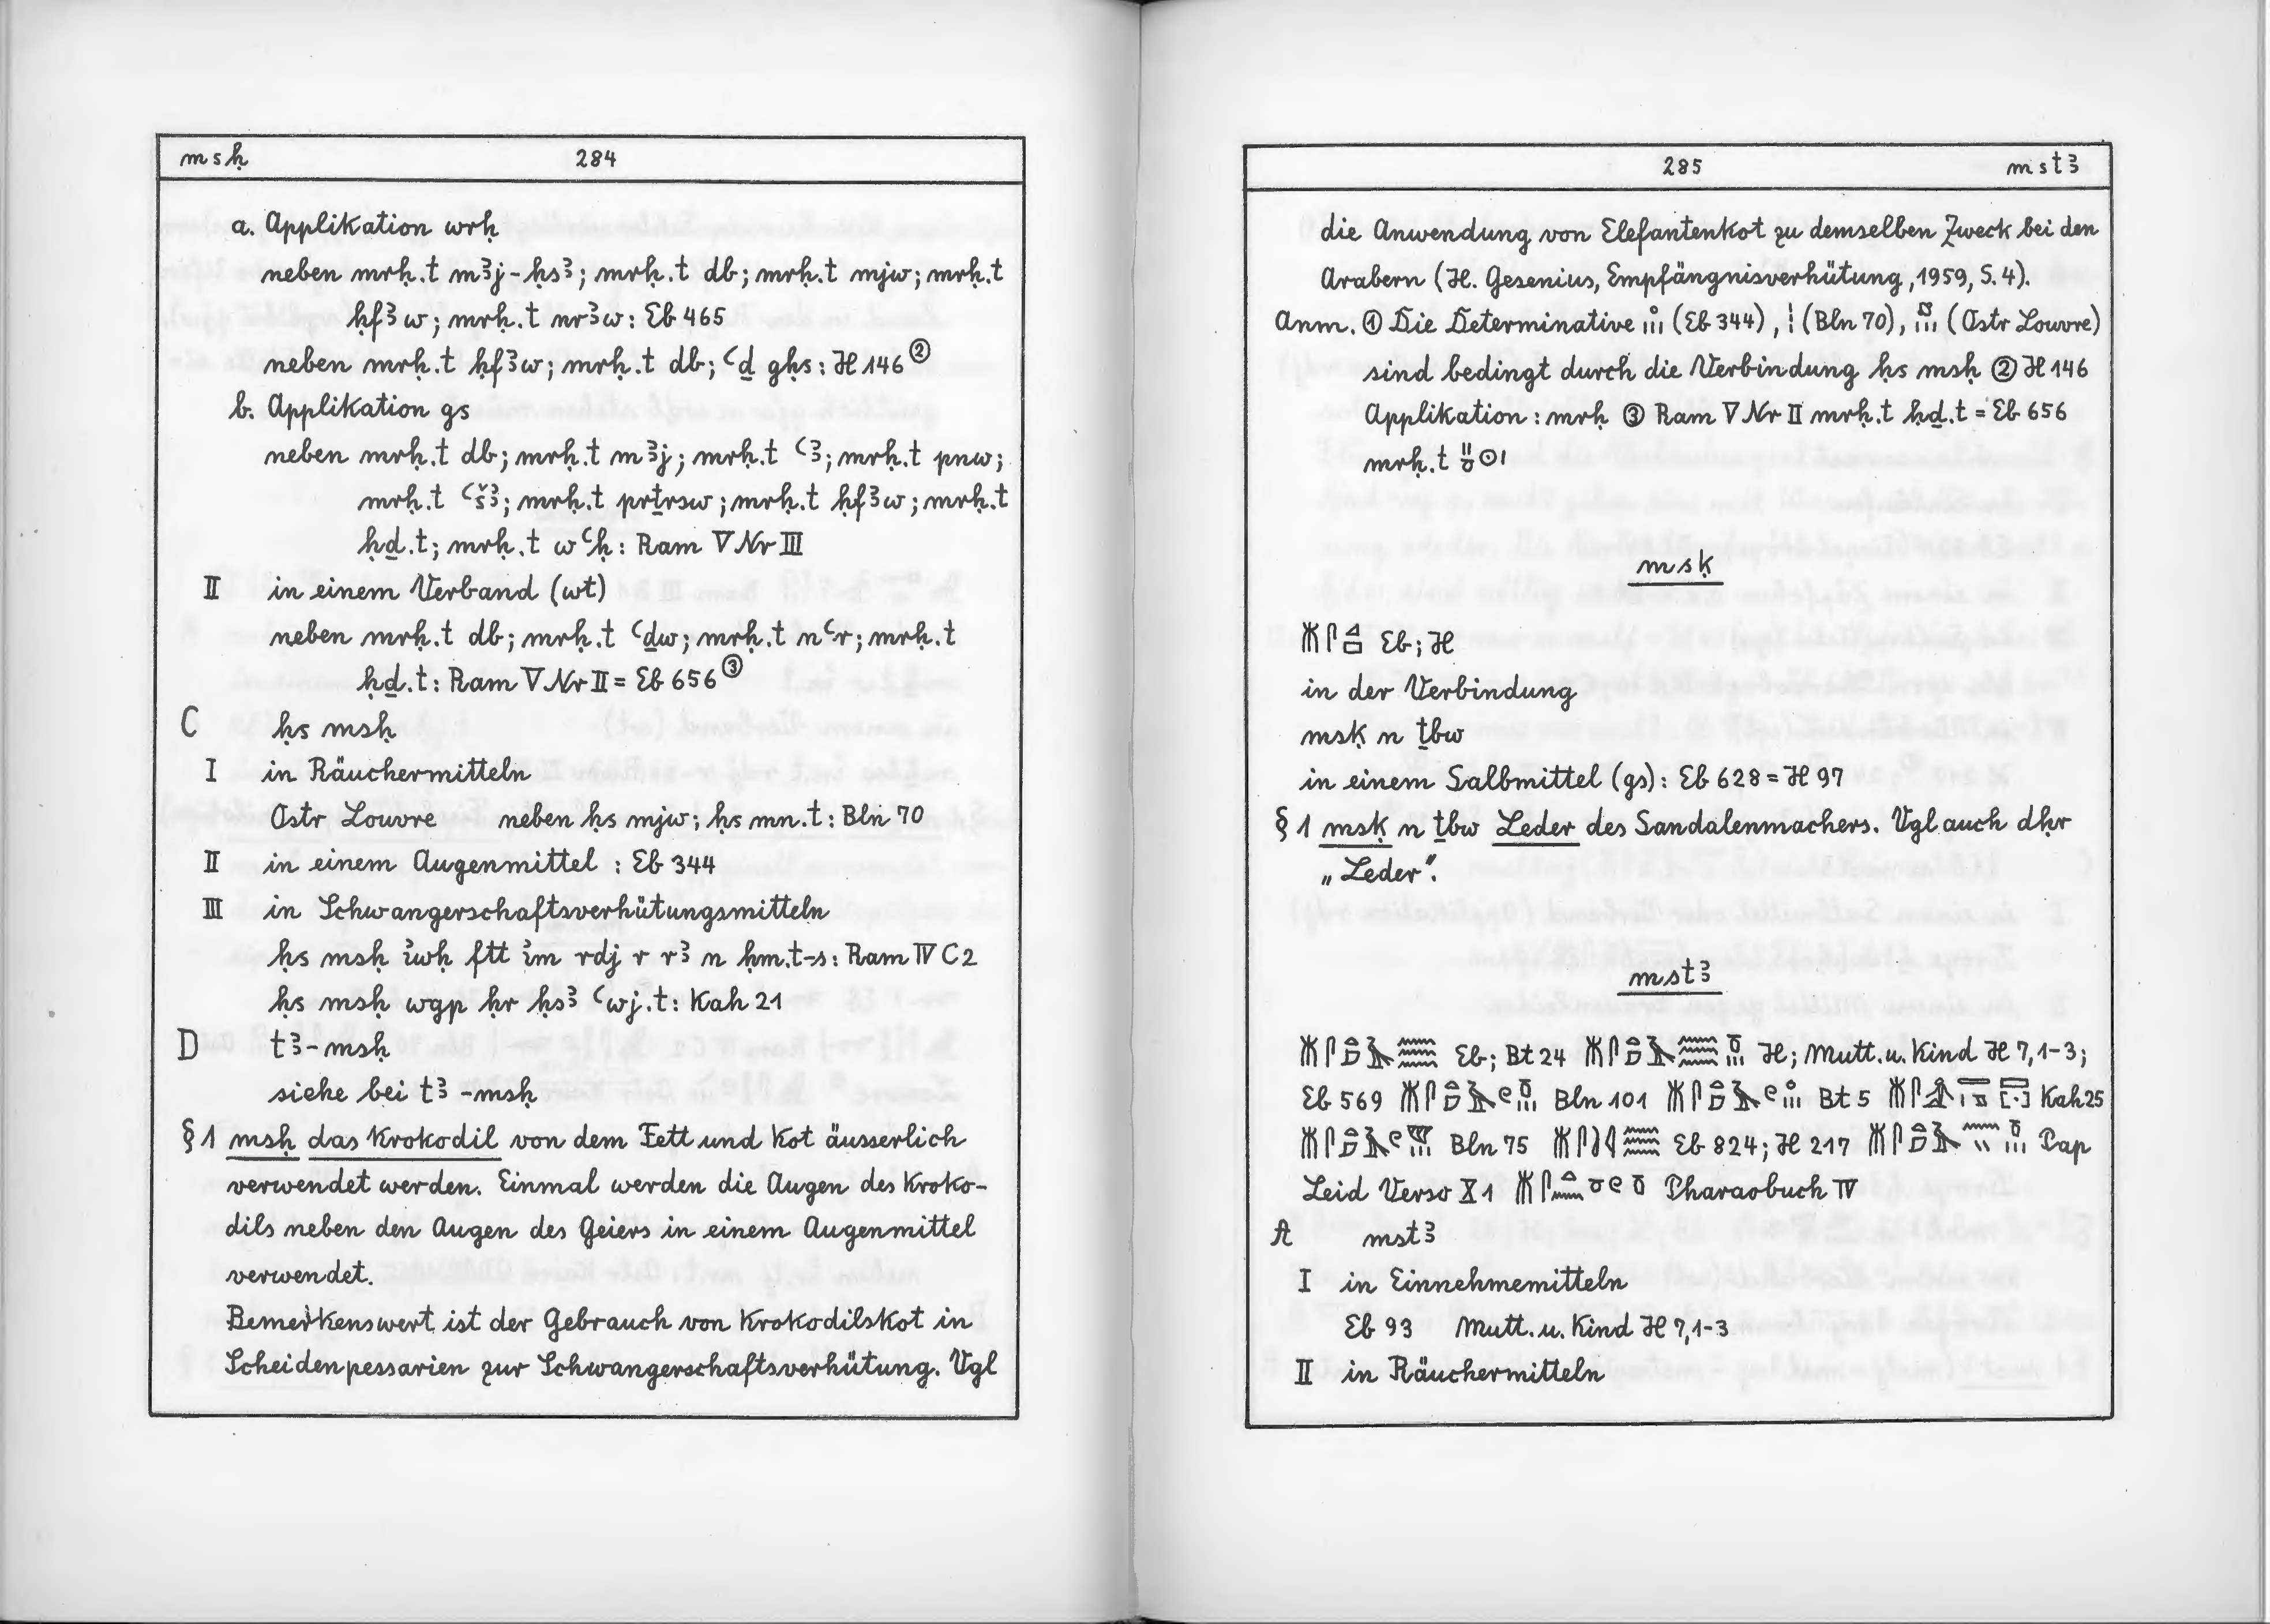 msḥ 284
a. Applikation wrḥ
neben mrḥ.t mꜣj-ḥsꜣ; mrḥ.t db; mrḥ.t mjw; mrḥ.t
ḥfꜣw; mrḥ.t nrꜣw: Eb 465
neben mrḥ.t ḥfꜣw; mrḥ.t db; ꜥḏ gḥs: H 146 ②
b. Applikation gs
neben mrḥ.t db; mrḥ.t mꜣj; mrḥ.t ꜥꜣ; mrḥ.t pnw;
mrḥ.t ꜥšꜣ; mrḥ.t prṯrsw; mrḥ.t ḥfꜣw; mrḥ.t
ḥḏ.t; mrḥ.t wꜥḥ: Ram V Nr III
II in einem Verband (wt)
neben mrḥ.t db; mrḥ.t ꜥḏw; mrḥ.t nꜥr; mrḥ.t
ḥḏ.t: Ram V Nr II = Eb 656 ③
C ḥs msḥ
I in Räuchermitteln
Ostr Louvre neben ḥs mjw; ḥs mn.t: Bln 70
II in einem Augenmittel: Eb 344
III in Schwangerschaftsverhütungsmitteln
ḥs msḥ i҆wḥ ftt i҆m rdj r rꜣ n ḥm.t-s: Ram IV C 2
ḥs msḥ wgp ḥr ḥsꜣ ꜥwj.t: Kah 21
D tꜣ-msḥ
siehe bei tꜣ-msḥ
§ 1 msḥ das Krokodil von dem Fett und Kot äusserlich
verwendet werden. Einmal werden die Augen des Kroko-
dils neben den Augen des Geiers in einem Augenmittel
verwendet.
Bemerkenswert ist der Gebrauch von Krokodilskot in
Scheidenpessarien zur Schwangerschaftsverhütung. Vgl
285 mstꜣ
die Anwendung von Elefantenkot zu demselben Zweck bei den
Arabern (H. Gesenius, Empfängnisverhütung, 1959, S. 4).
Anm. ① Die Determinative (Eb 344), (Bln 70), (Ostr Louvre)
sind bedingt durch die Verbindung ḥs msḥ ② H 146
Applikation: mrḥ ③ Ram V Nr II mrḥ.t ḥḏ.t = Eb 656
mrḥ.t
msḳ
Eb; H
in der Verbindung
msḳ n ṯbw
in einem Salbmittel (gs): Eb 628 = H 97
§ 1 msḳ n ṯbw Leder des Sandalenmachers. Vgl auch dḥr
„Leder".
mstꜣ
Eb; Bt 24 H; Mutt. u. Kind H 7,1-3;
Eb 569 Bln 101 Bt 5 Kah 25
Bln 75 Eb 824; H 217 Pap
Leid Verso X 1 Pharaobuch IV
A mstꜣ
I in Einnehmemitteln
Eb 93 Mutt. u. Kind H 7,1-3
II in Räuchermitteln